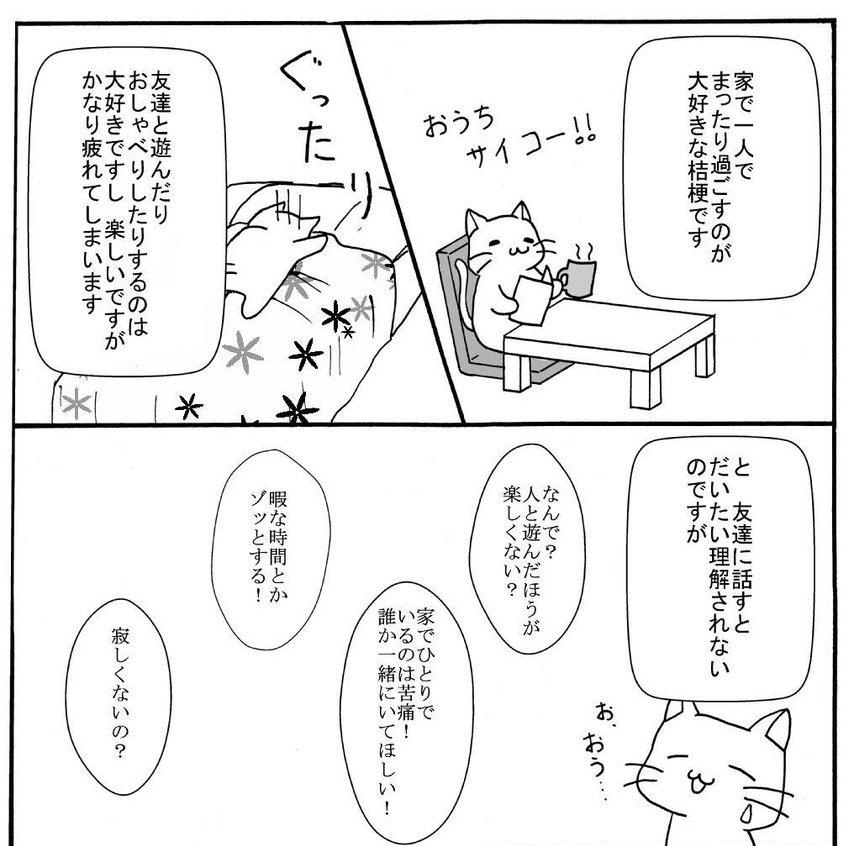 家で一人で
まったり過ごすのが
大好きな桔梗です
おうち
サイコー!!
ぐったり
友達と遊んだり
おしゃべりしたりするのは
大好きですし 楽しいですが
かなり疲れてしまいます
と 友達に話すと
だいたい理解されない
のですが
なんで?
人と遊んだほうが
楽しくない?
家でひとりで
いるのは苦痛!
誰か一緒にいてほしい!
暇な時間とか
ゾッとする!
寂しくないの?
お、
おう…